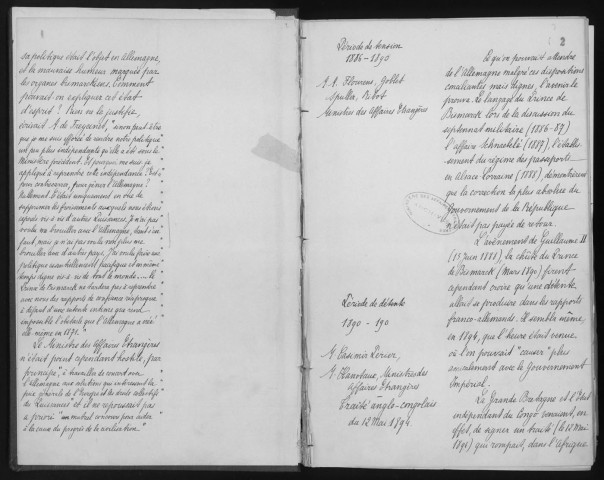 sa politique était l'objet en Allemagne,
et la mauvaise humeur marquée par
les organes bismarckiens. Comment
pouvait-on expliquer cet état
d'esprit ? "Rien ne la justifie
écrivait M de Freycinet, sinon peut-être
que je me suis efforcé de rendre notre politique
un peu plus indépendante qu'elle n'était sous le
Ministère précédent. Et pourquoi me suis-je
appliqué à reprendre cette indépendance ? Est-ce
pour contrecarrer, pour gêner l'Allemagne ?
Nullement. C'était uniquement en vue de
supprimer les froissements auxquels nous étions
exposés vis à vis d'autres Puissances. Je n'ai pas
voulu me brouiller avec l'Allemagne, tant s'en
faut, mais je n'ai pas voulu non plus me
brouiller avec d'autres pays. J'ai voulu faire une
politique essentiellement pacifique et en même
temps digne vis à vis de tout le monde.... Le
Prince de Bismarck ne tardera pas à reprendre
avec nous des rapports de confiance réciproque
à défaut d'une entente intime que rend
impossible l'obstacle que l'Allemagne a créé
elle-même en 1871."
Le Ministre des Affaires Etrangères
n'était point cependant hostile, par
principe, à travailler de concert avec
l'Allemagne aux solutions qui intéressent la
paix générale de l'Europe et les droits collectifs
de Puissances et il ne repoussait pas
à fournir "un mutuel concours pour aider
à la cause du progrès de la civilisation."
2
Période de tension
1886-1890
M.M. Flourens, Goblet
Spuller, Ribot
Ministres des Affaires Etrangères
Ce qu'on pouvait attendre
de l'Allemagne malgré ces dispositions
conciliantes mais dignes, l'avenir le
prouva. Le langage du Prince de
Bismarck lors de la discussion du
septennat militaire (1886-87)
l'affaire Schnaebelé (1887), l'établis-
sement du régime des passeports
en Alsace-Lorraine (1888), démontrèrent
que la correction la plus absolue du
Gouvernement de la République
n'était pas payée de retour.
L'avènement de Guillaume II
(15 Juin 1888), la chûte du Prince
de Bismarck (Mars 1890) firent
cependant croire qu'une détente
allait se produire dans les rapports
franco-allemands. Il sembla même,
en 1894, que l'heure était venue
où l'on pouvait "causer" plus
amicalement avec le Gouvernement
Impérial.
Période de détente
1890 - 190
M Casimir Périer,
M Hanotaux, Ministres des
Affaires Etrangères
Traité anglo-congolais
du 12 Mai 1894
La Grande Bretagne et l'Etat
indépendant du Congo venaient, en
effet, de signer un traité (le 12 Mai
1894) qui rompait, dans l'Afrique